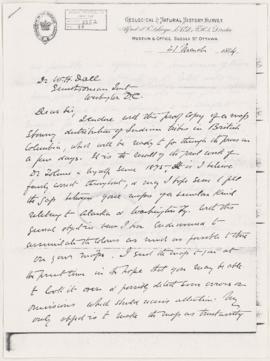 GEOLOGICAL & NATURAL HISTORY SURVEY
Alfred R. C. Selwyn, LL.D., F.R.S., Director
MUSEUM & OFFICE, SUSSEX ST. OTTAWA.
21 March 1884
Dr W. H. Dall
Smithsonian Inst
Washington D.C.
Dear Sir,
I enclose with this proof copy of a map
showing distribution of Indian tribes in British
Columbia, which will be ready to go through the press in
a few days. It is the result of the joint work of
Dr Tolmie & myself since 1875. It is I believe
fairly correct throughout, & may I hope serve to fill
the gap between your maps of a similar kind
relating to Alaska & Washington Ty. With this
general object in view I have endeavoured to
assimilate the colours as much as possible to those
on your maps. I send the map to you at
the present time in the hope that you may be able
to look it over & possibly detect some errors or
omissions which should receive attention. My
only object is to make the map as trustworthy